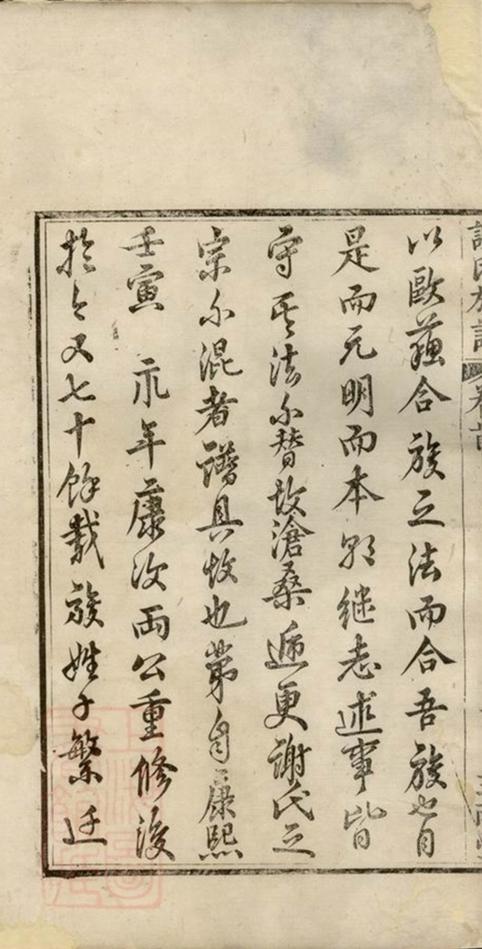 以歐蘓合族之法而合吾族也自
是而元明而本朝継志述事皆
守其法不替故滄桑遞更謝氏之
宗不混者譜具故也第自康熙
壬寅 示年康汝両公重修後
於今又七十餘載族姓子繁迁